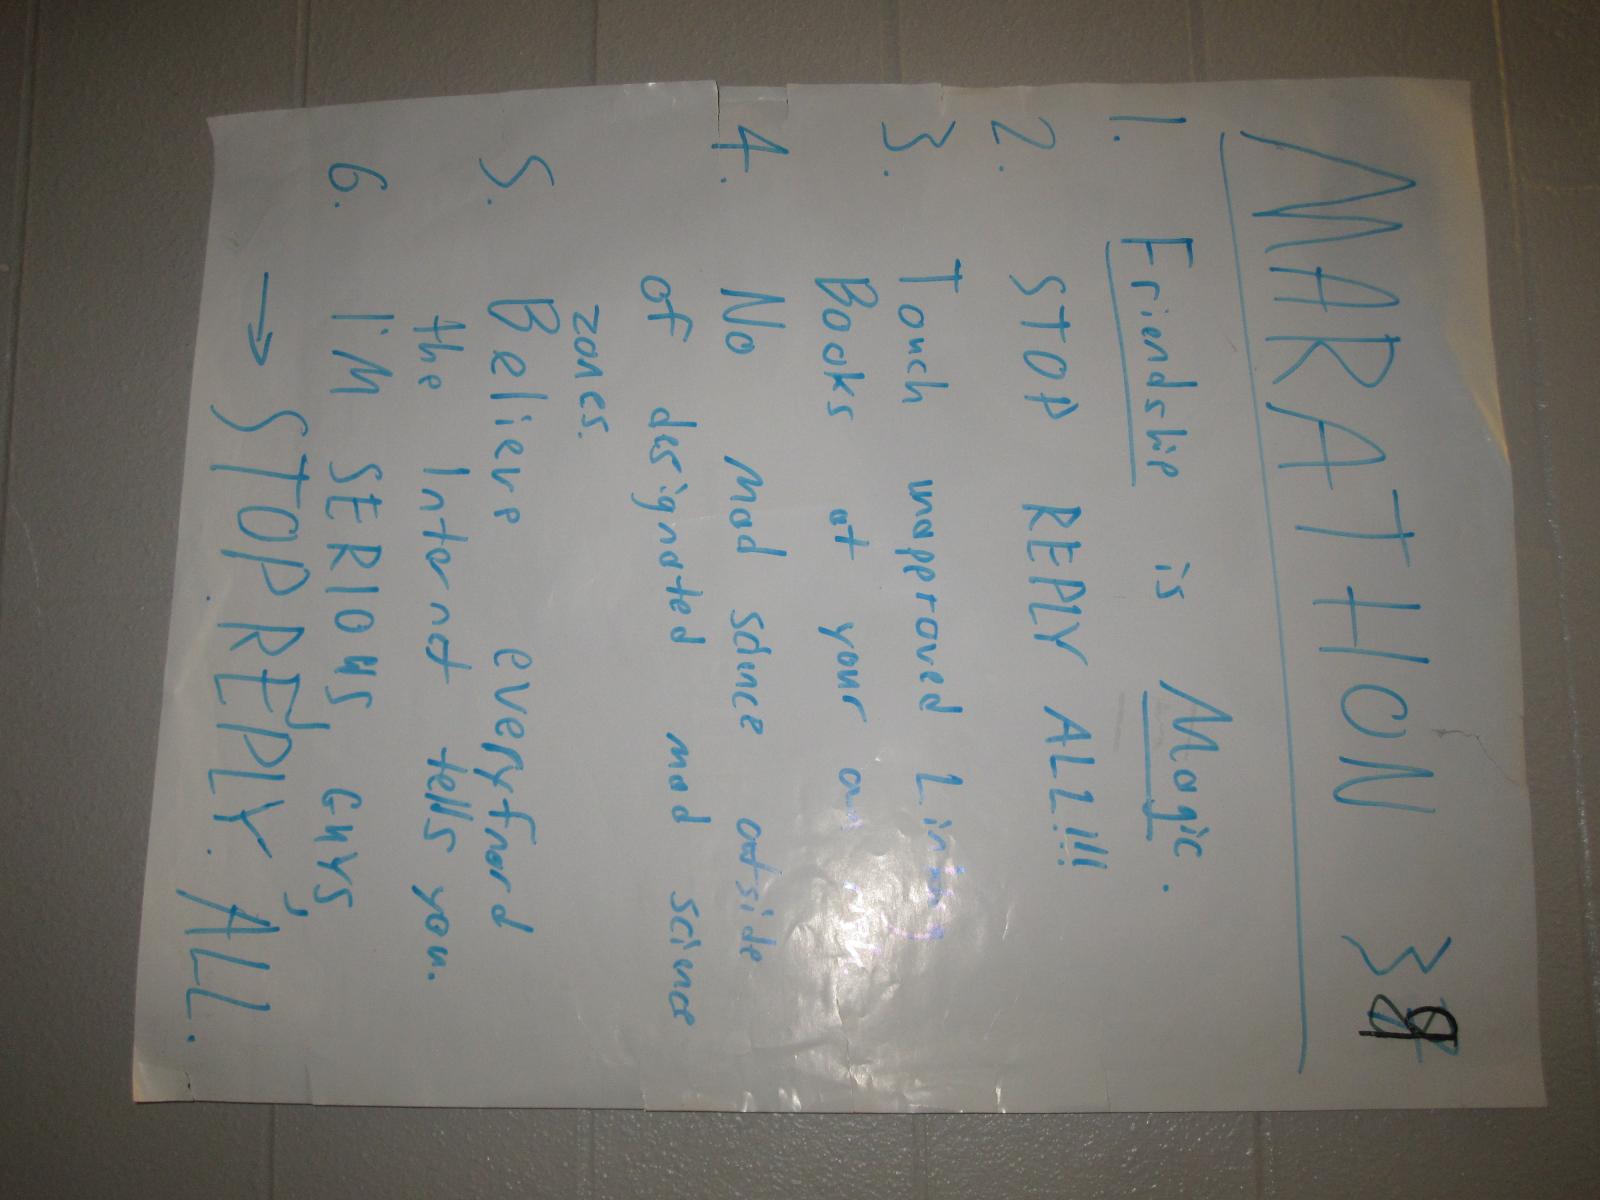 MARATHON
1. Friendship is Magic.
2. STOP REPLY ALL!!!
3. Touch unapproved Living
Books at your own
4. No mad science outside
of designated mad science
zones.
5. Believe everyfnord
the Internet tells you.
6. I'M SERIOUS GUYS,
→ STOP REPLY ALL.